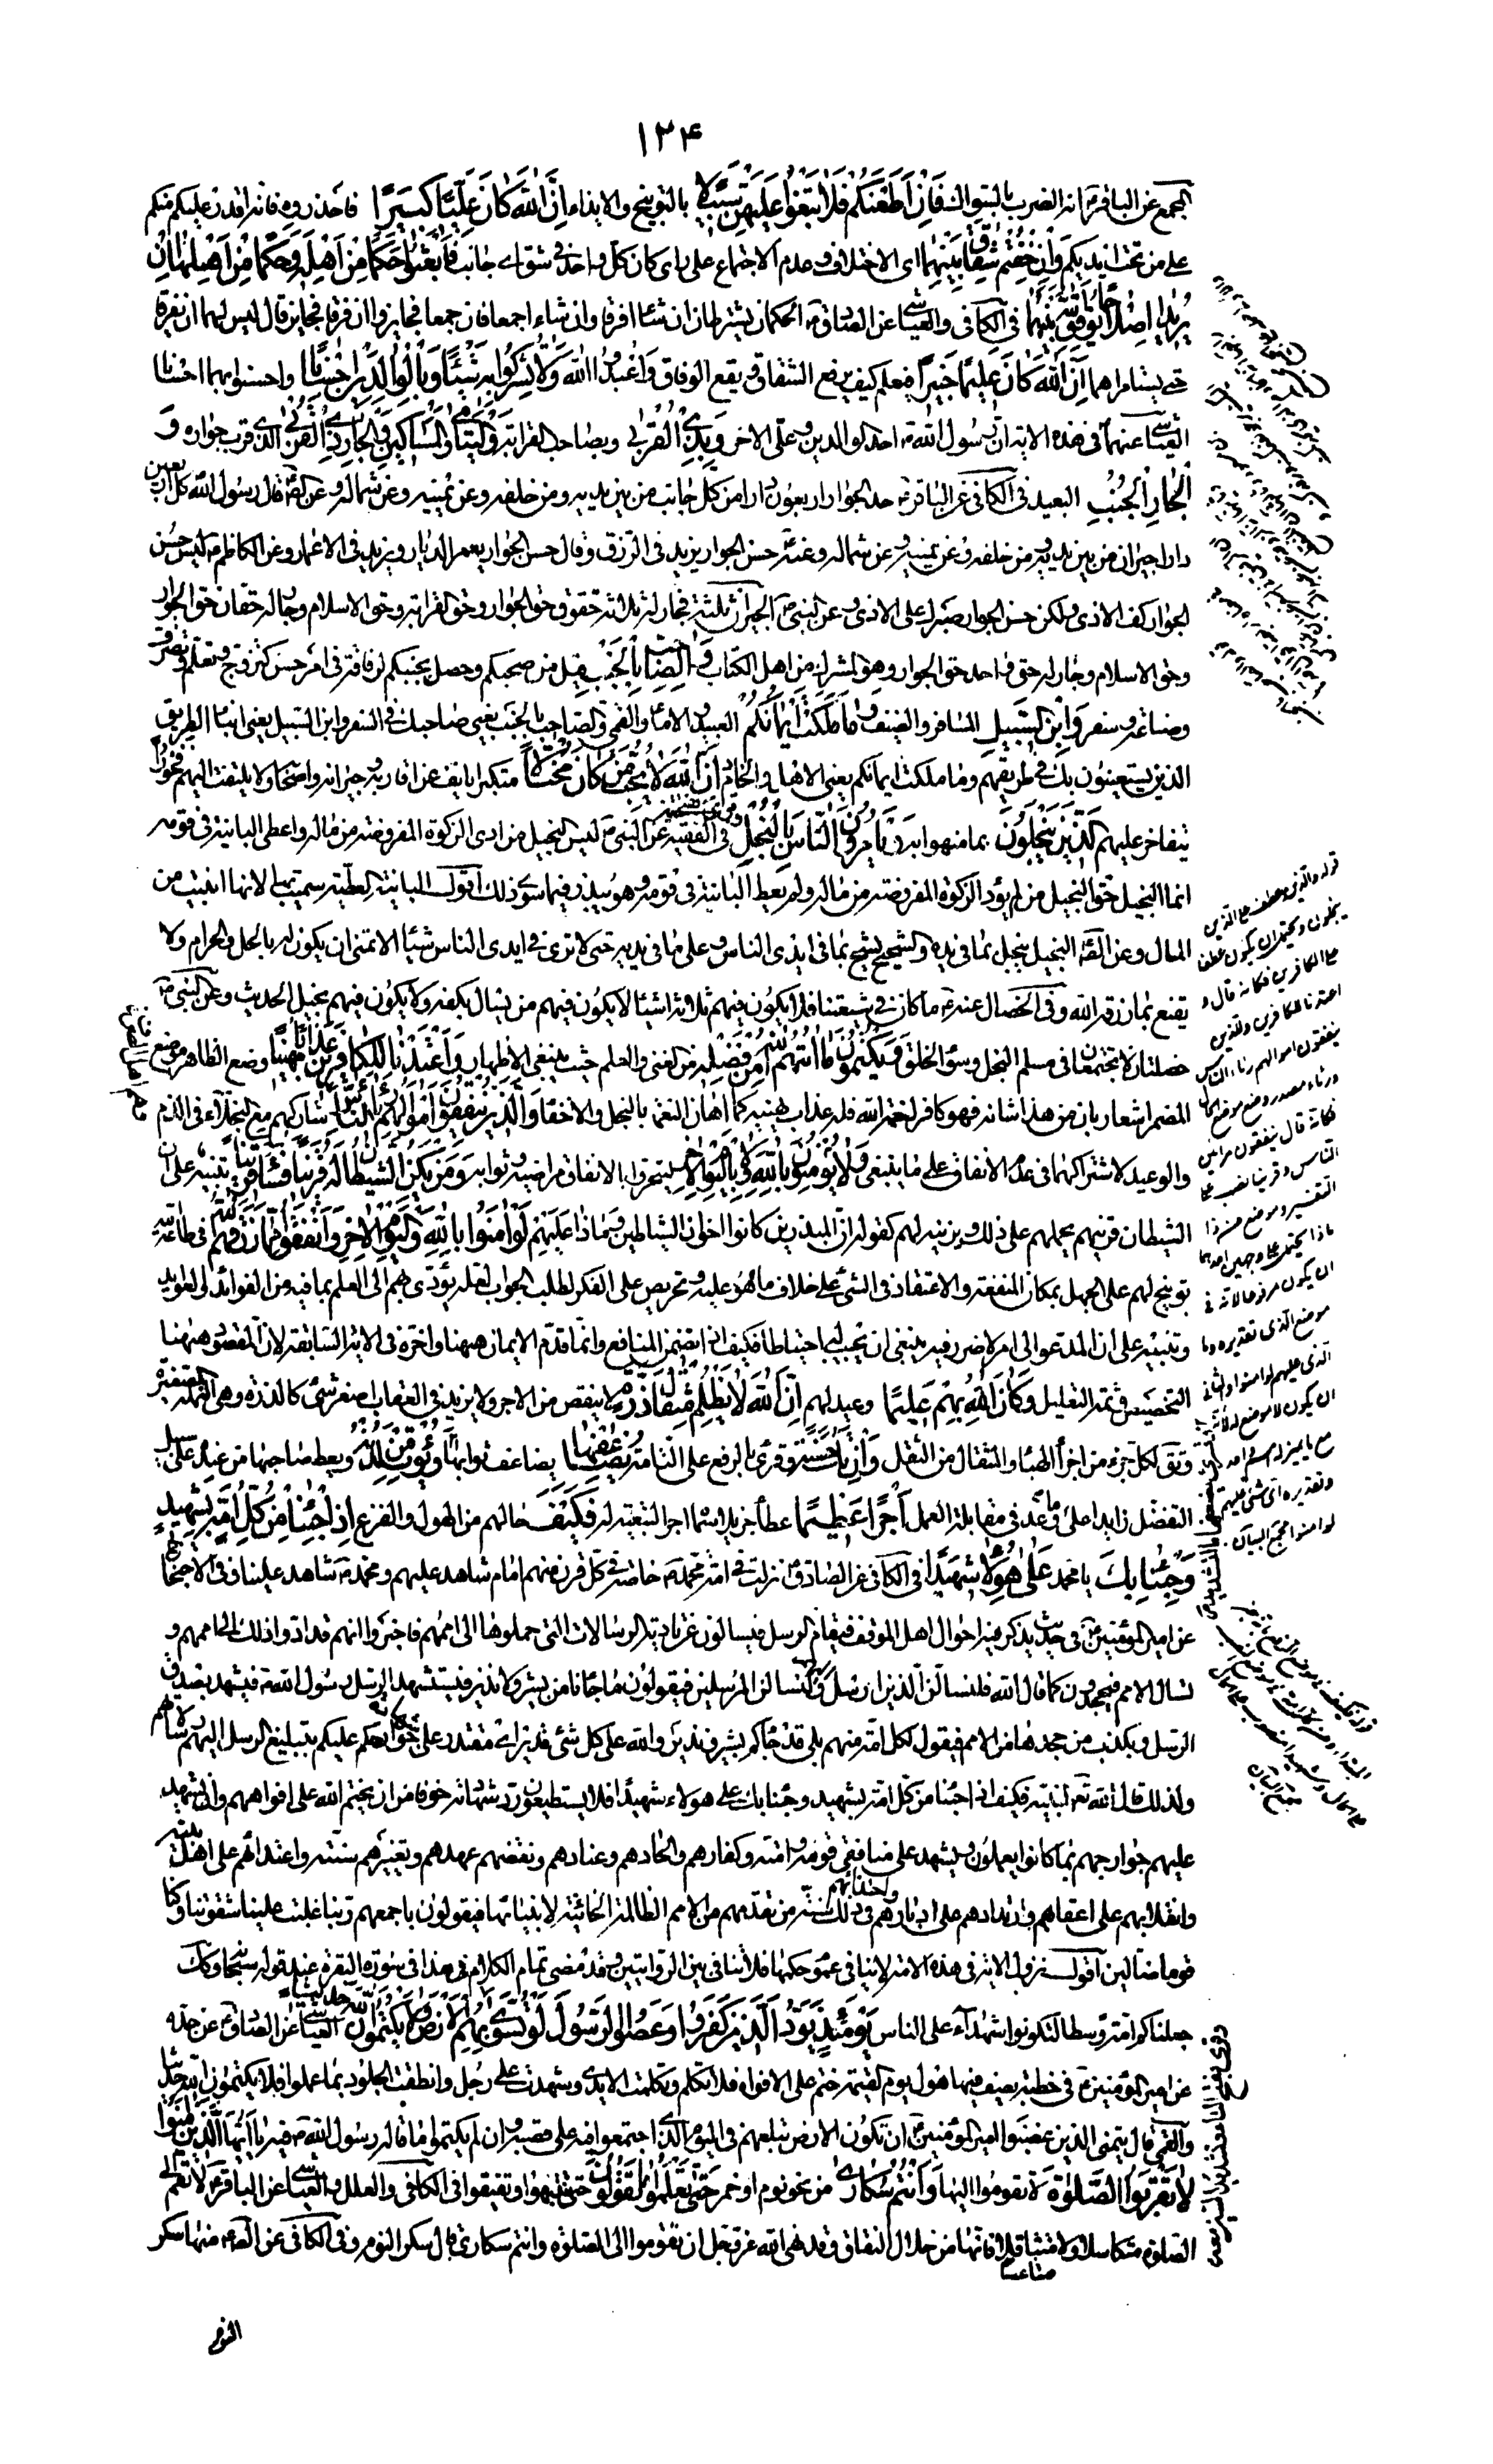 ١٣۴
المجمع عن الباقر ع انه الضرب بالسواك فَاِنْ اَطَعْنَكُمْ فَلَا تَبْغُوا عَلَيْهِنَّ سَبِيلًا بالتوبيخ والايذاء اِنَّ اللهَ كَانَ عَلِيًّا كَبِيرًا فاحذروه فانه اقدر عليكم منكم
على من تحت ايديكم وَاِنْ خِفْتُمْ شِقَاقَ بَيْنِهِمَا اى الاختلاف وعدم الاجتماع على راى كان كل واحد فى شق اى جانب فَابْعَثُوا حَكَمًا مِنْ اَهْلِهِ وَحَكَمًا مِنْ اَهْلِهَا اِنْ
يُرِيدَا اِصْلَاحًا يُوَفِّقِ اللهُ بَيْنَهُمَا فى الكافى والعياشى عن الصادق ع الحكمان يشترطان ان شاءا فرقا وان شاءا جمعا فان جمعا فجايز وان فرقا فجايز قال ليس لهما ان يفرقا
حتى يستامراهما اِنَّ اللهَ كَانَ عَلِيمًا خَبِيرًا فيعلم كيف يرفع الشقاق ويقع الوفاق وَاعْبُدُوا اللهَ وَلَا تُشْرِكُوا بِهِ شَيْئًا وَبِالْوَالِدَيْنِ اِحْسَانًا واحسنوا بهما احسانا
العياشى عنهما ع فى هذه الاية ان رسول الله ص احد الوالدين وعلى الاخر وَبِذِى الْقُرْبٰى وبصاحب القرابة وَالْيَتَامٰى وَالْمَسَاكِينِ وَالْجَارِ ذِى الْقُرْبٰى الذى قرب جواره وَ
الْجَارِ الْجُنُبِ البعيد فى الكافى عن الباقر ع حد الجوار اربعون دارا من كل جانب من بين يديه ومن خلفه وعن يمينه وعن شماله وعن الصادق ع قال رسول الله كل اربعين
دارا جيران من بين يديه ومن خلفه وعن يمينه وعن شماله وعنه ع حسن الجوار يزيد فى الرزق وقال حسن الجوار يعمر الديار ويزيد فى الاعمار وعن الكاظم ع ليس حسن
الجوار كف الاذى ولكن حسن الجوار صبرك على الاذى وعن النبى ص الجيران ثلثة فجار له ثلاثة حقوق حق الجوار وحق القرابة وحق الاسلام وجار له حقان حق الجوار
وحق الاسلام وجار له حق واحد حق الجوار وهو المشرك من اهل الكتاب وَالصَّاحِبِ بِالْجَنْبِ قيل من صحبكم وحصل بجنبكم لرفاقة فى امر حسن كتزوج وتعلم وتصرف
وصناعة وسفر وَابْنِ السَّبِيلِ المسافر والضيف وَمَا مَلَكَتْ اَيْمَانُكُمْ العبيد والاماء والقمى والصاحب بالجنب يعنى صاحبك فى السفر وابن السبيل يعنى ابناء الطريق
الذين يستعينون بك فى طريقهم وما ملكت ايمانكم يعنى الاهل والخادم اِنَّ اللهَ لَا يُحِبُّ مَنْ كَانَ مُخْتَالًا متكبرا يانف عن اقاربه وجيرانه واصحابه ولا يلتفت اليهم فَخُورًا
يتفاخر عليهم الَّذِينَ يَبْخَلُونَ بما منحوا به وَيَأْمُرُونَ النَّاسَ بِالْبُخْلِ فى الفقيه عن النبى ص ليس البخيل من ادى الزكوة المفروضة من ماله واعطى البائنة فى قومه
انما البخيل حق البخيل من لم يؤد الزكوة المفروضة من ماله ولم يعط البائنة فى قومه وهو يبذر فيما سوى ذلك اقول البائنة العطية سميت بها لانها ابينت من
المال وعن الصادق ع البخيل يبخل بما فى يده والشحيح يشح بما فى ايدى الناس وعلى ما فى يديه حتى لا ترى فى ايدى الناس شيئا الا تمنى ان يكون له بالحل والحرام ولا
يقنع بما رزقه الله وفى الخصال عنه ع ما كان فى شيعتنا فلا يكون فيهم ثلاثة اشياء لا يكون فيهم من يسال بكفه ولا يكون فيهم بخيل الحديث وعن النبى ص
خصلتان لا تجتمعان فى مسلم البخل وسوء الخلق وَيَكْتُمُونَ مَا اٰتٰيهُمُ اللهُ مِنْ فَضْلِهِ من الغنى والعلم حيث ينبغى الاظهار وَاَعْتَدْنَا لِلْكَافِرِينَ عَذَابًا مُهِينًا وضع الظاهر موضع
المضمر اشعار بان من هذا شانه فهو كافر لنعمة الله فله عذاب يهينه كما اهان النعمة بالبخل والاخفاء وَالَّذِينَ يُنْفِقُونَ اَمْوَالَهُمْ رِئَاءَ النَّاسِ شاركهم مع البخلاء فى الذم
والوعيد لاشتراكهما فى عدم الانفاق على ما ينبغى وَلَا يُؤْمِنُونَ بِاللهِ وَلَا بِالْيَوْمِ الْاٰخِرِ ليتحروا بالانفاق مراضيه وثوابه وَمَنْ يَكُنِ الشَّيْطَانُ لَهُ قَرِينًا فَسَاءَ قَرِينًا تنبيه على ان
الشيطان قرينهم يحملهم على ذلك ويزينه لهم كقوله ان المبذرين كانوا اخوان الشياطين وَمَاذَا عَلَيْهِمْ لَوْ اٰمَنُوا بِاللهِ وَالْيَوْمِ الْاٰخِرِ وَاَنْفَقُوا مِمَّا رَزَقَهُمُ اللهُ فى طاعة الله
توبيخ لهم على الجهل بمكان المنفعة والاعتقاد فى الشىء على خلاف ما هو عليه وتحريص على الفكر لطلب الجواب لعله يؤدى بهم الى العلم بما فيه من الفوائد والعوايد
وتنبيه على ان المدعو الى امر لا ضرر فيه ينبغى ان يجيب اليه احتياطا فكيف اذا تضمن المنافع وانما قدم الايمان ههنا واخره فى الاية السابقة لان المقصود ههنا
التخصيص وثم التعليل وَكَانَ اللهُ بِهِمْ عَلِيمًا وعيد لهم اِنَّ اللهَ لَا يَظْلِمُ مِثْقَالَ ذَرَّةٍ لا ينقص من الاجر ولا يزيد فى العقاب اصغر شىء كالذرة وهى النملة الصغيرة
ويق لكل جزء من اجزاء الهباء والمثقال من الثقل وَاِنْ تَكُ حَسَنَةً وقرئ بالرفع على التامة يُضَاعِفْهَا يضاعف ثوابها وَيُؤْتِ مِنْ لَدُنْهُ ويعط صاحبها من عنده على سبيل
التفضل زايدا على ما وعد فى مقابلة العمل اَجْرًا عَظِيمًا عطاء جزيلا سماه اجرا لتبعيته له فَكَيْفَ حالهم من الهول والفزع اِذَا جِئْنَا مِنْ كُلِّ اُمَّةٍ بِشَهِيدٍ
وَجِئْنَا بِكَ يا محمد عَلٰى هٰؤُلَاءِ شَهِيدًا فى الكافى عن الصادق ع نزلت فى امة محمد ص خاصة فى كل قرن منهم امام شاهد عليهم ومحمد ص شاهد علينا وفى الاحتجاج
عن امير المؤمنين ع فى حديث يذكر فيه احوال اهل الموقف فيقام الرسل فيسالون عن تادية الرسالات التى حملوها الى اممهم فاخبروا انهم قد ادوا ذلك الى اممهم و
تسال الامم فيجحدون كما قال الله فلنسالن الذين ارسل اليهم ولنسالن المرسلين فيقولون ما جاءنا من بشير ولا نذير فيستشهد الرسل رسول الله ص فيشهد بصدق
الرسل ويكذب من جحدها من الامم فيقول لكل امة منهم بلى قد جاءكم بشير ونذير والله على كل شىء قدير اى مقتدر على شهادة جوارحكم عليكم بتبليغ الرسل اليهم رسالاتهم
ولذلك قال الله تع لنبيه فكيف اذا جئنا من كل امة بشهيد وجئنا بك على هؤلاء شهيدا فلا يستطيعون رد شهادته خوفا من ان يختم الله على افواههم وان يشهد
عليهم جوارحهم بما كانوا يعملون ويشهد على منافقى قومه وامته وكفارهم والحادهم وعنادهم ونقضهم عهدهم وتغييرهم سنته واعتدائهم على اهل بيته
وانقلابهم على اعقابهم وارتدادهم على ادبارهم واحتذائهم فى ذلك سنة من تقدمهم من الامم الظالمة الخائنة لانبيائها فيقولون باجمعهم ربنا غلبت علينا شقوتنا وكنا
قوما ضالين اقول نزول الاية فى هذه الامة لا ينافى عموم حكمها فلا تنافى بين الروايتين وقد مضى تمام الكلام فى هذا فى سورة البقرة عند قوله سبحانه وكذلك
جعلناكم امة وسطا لتكونوا شهداء على الناس يَوْمَئِذٍ يَوَدُّ الَّذِينَ كَفَرُوا وَعَصَوُا الرَّسُولَ لَوْ تُسَوّٰى بِهِمُ الْاَرْضُ وَلَا يَكْتُمُونَ اللهَ حَدِيثًا العياشى عن الصادق ع عن جده
عن امير المؤمنين ع فى خطبة يصف فيها هول يوم القيمة ختم على الافواه فلا تكلم وتكلمت الايدى وشهدت الارجل وانطقت الجلود بما عملوا فلا يكتمون الله حديثا
والقمى قال يتمنى الذين غصبوا امير المؤمنين ع ان تكون الارض تبلعهم فى اليوم الذى اجتمعوا فيه على غصبه وان لم يكتموا ما قاله رسول الله ص فيه يَا اَيُّهَا الَّذِينَ اٰمَنُوا
لَا تَقْرَبُوا الصَّلٰوةَ لا تقوموا اليها وَاَنْتُمْ سُكَارٰى من نحو نوم او خمر حَتّٰى تَعْلَمُوا مَا تَقُولُونَ حتى تنبهوا وتفيقوا فى الكافى والعلل والعياشى عن الباقر ع لا تقم الى
الصلوة متكاسلا ولا متناعسا ولا متثاقلا فانها من خلال النفاق وقد نهى الله عز وجل ان تقوموا الى الصلوة وانتم سكارى قال سكر النوم وفى الكافى عن الصادق ع منها سكر
النوم
قوله والذين عطف على الذين
يبخلون ويحتمل ان يكون عطفا
على الكافرين فكانه قال و
اعتدنا للكافرين وللذين
ينفقون اموالهم رئاء الناس
ورئاء مصدر وضع موضع الحال
فكانه قال ينفقون مرائين
الناس وقرينا نصب على
التفسير وموضع من ذا
ماذا يحتمل على وجهين احدهما
ان يكون مرفوعا لانه فى
موضع الذى تقديره وما
الذى عليهم لو امنوا والثانى
ان يكون لا موضع له لانه
مع ما بمنزلة اسم واحد
وتقديره اى شىء عليهم
لو امنوا مجمع البيان